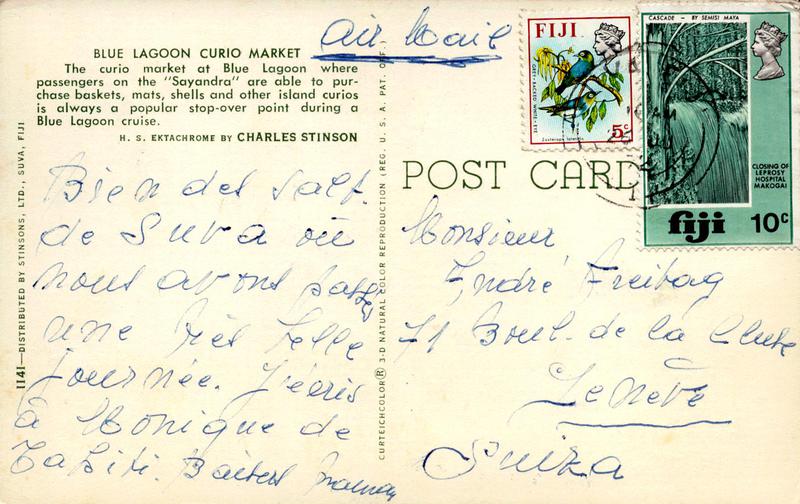 BLUE LAGOON CURIO MARKET
The curio market at Blue Lagoon where
passengers on the "Sayandra" are able to pur-
chase baskets, mats, shells and other island curios
is always a popular stop-over point during a
Blue Lagoon cruise.
H. S. EKTACHROME BY CHARLES STINSON
1141—DISTRIBUTED BY STINSONS, LTD., SUVA, FIJI
Bien des sal.
de Suva où
nous avons passés
une très belle
journée. J'écris
à Monique de
Tahiti. Baisers Maman
CURTEICHCOLOR® 3-D NATURAL COLOR REPRODUCTION (REG. U. S. A. PAT. OFF.)
Air Mail
POST CARD
Monsieur
André Freitag
71 Boul. de la Cluse
Genève
Suiza
FIJI
GREY-BACKED WHITE-EYE
5c
CASCADE - BY SEMISI MAYA
CLOSING OF
LEPROSY
HOSPITAL
MAKOGAI
fiji 10c